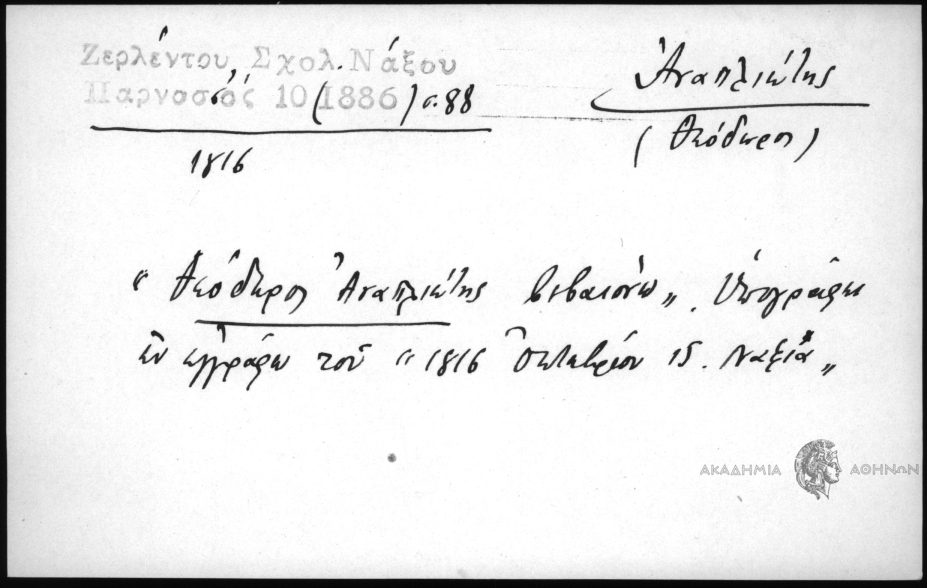 Ζερλέντου, Σχολ. Νάξου
Παρνασσός 10 (1886) σ. 88
Ἀναπλιώτης
(Θεόδωρος)
1816
"Θεόδωρος Ἀναπλιώτης βεβαιόνω". Ὑπογράφει
ἐν ἐγγράφῳ τοῦ "1816 Ὀκτωβρίου 15. Ναξία"
ΑΚΑΔΗΜΙΑ ΑΘΗΝΩΝ